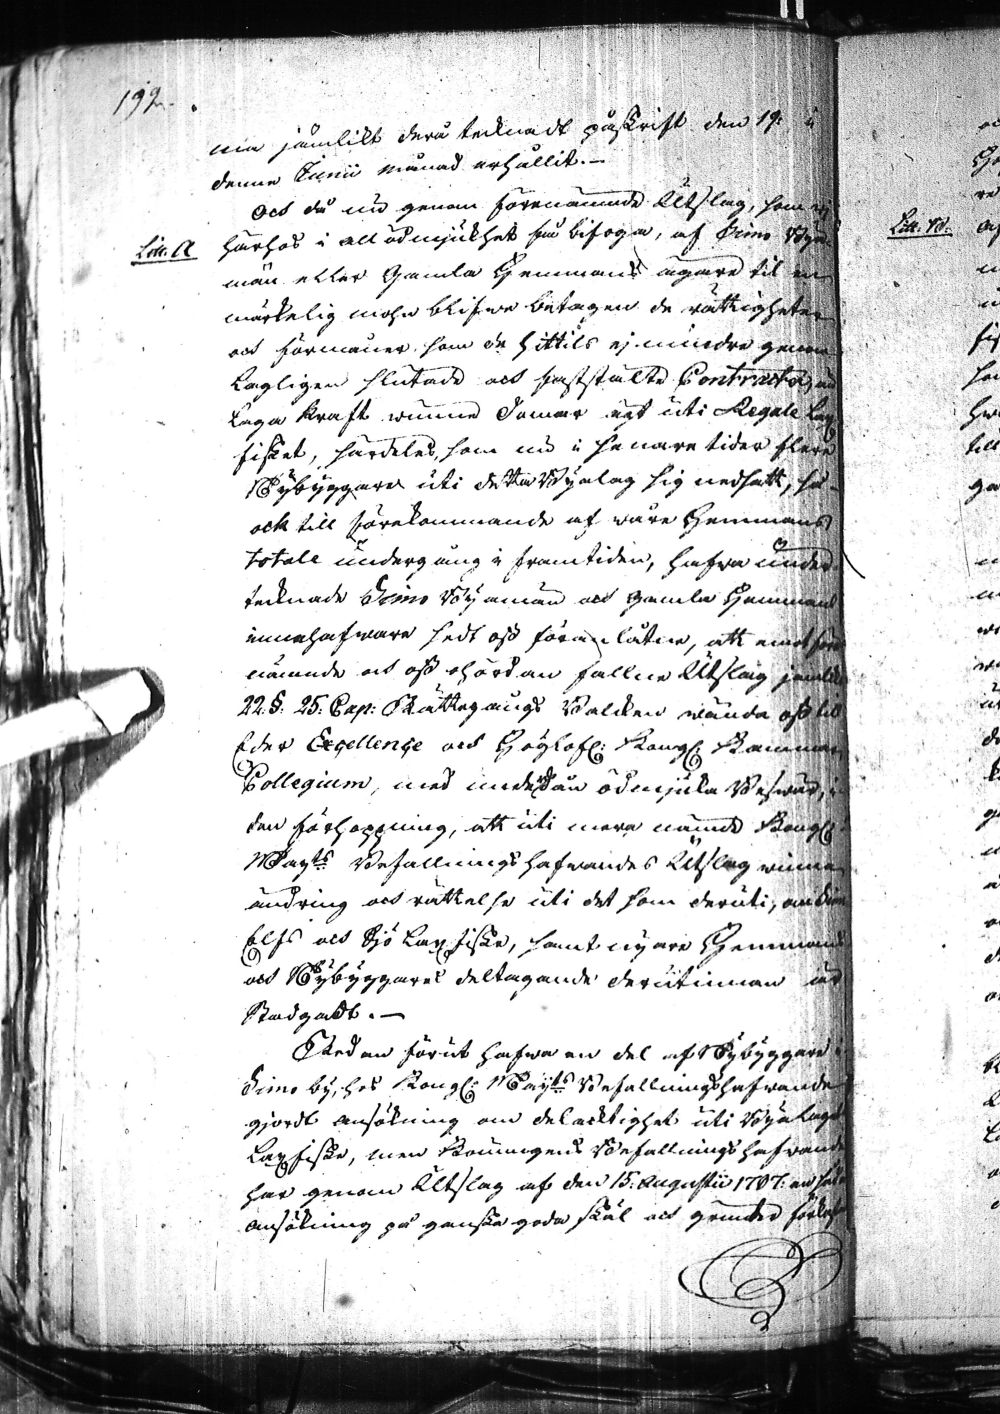 192.
ma jämlikt derå tecknadt påskrift den 19: i
denne Junii månad erhållit.—
Och då nu genom förenämnde Utslag, som wj
Litt. A härhos i all ödmjukhet få bifoga, af Simo Bya
män eller gamla Hemmans ägare til en
märkelig mohn blifwe betagen de rättigheter
och förmåner som de hittils ej mindre genom
Lagligen slutade och faststälte Contracter, än
Laga kraft wunne Domar ägt uti Regale Lax
fisket, särdeles, som nu i senare tider flere
Nybyggare uti detta Byalag sig nedsatt, så
ock till förekommande af wåre Hemmans
totale undergång i framtiden, hafwa under
tecknade Simo Byamän och gamla Hemmans
innehafware sedt oss föranlåtne, att emot före
nämnde och oss ohördan fallne Utslag jemlikt
22. §. 25. Cap: Rättegångs Balcken wända oss til
Eder Excellençe och Höglofl: Kongl: Kammar
Collegium, med underdån ödmjuka Beswär, i
den förhoppning, att uti mera nämnde Kongl:
Mayts Befallningshafwandes Utslag winna
ändring och rättelse uti det som deruti, om Simo
Elfs och Sjö Lax fiske, samt nyare Hemmans
och Nybyggares deltagande derutinnan är
Stadgadt.—
Redan förut hafwa en del af Nybyggare i
Simo by, hos Kongl: Mayts Befallningshafwande
gjordt ansökning om delacktighet uti Byalagets
Lax fiske, men Konungens Befallningshafwande
har genom Utslag af den 15: Augustii 1787: en sådan
ansökning på ganska goda skäl och grunder förkast
Litt. B.